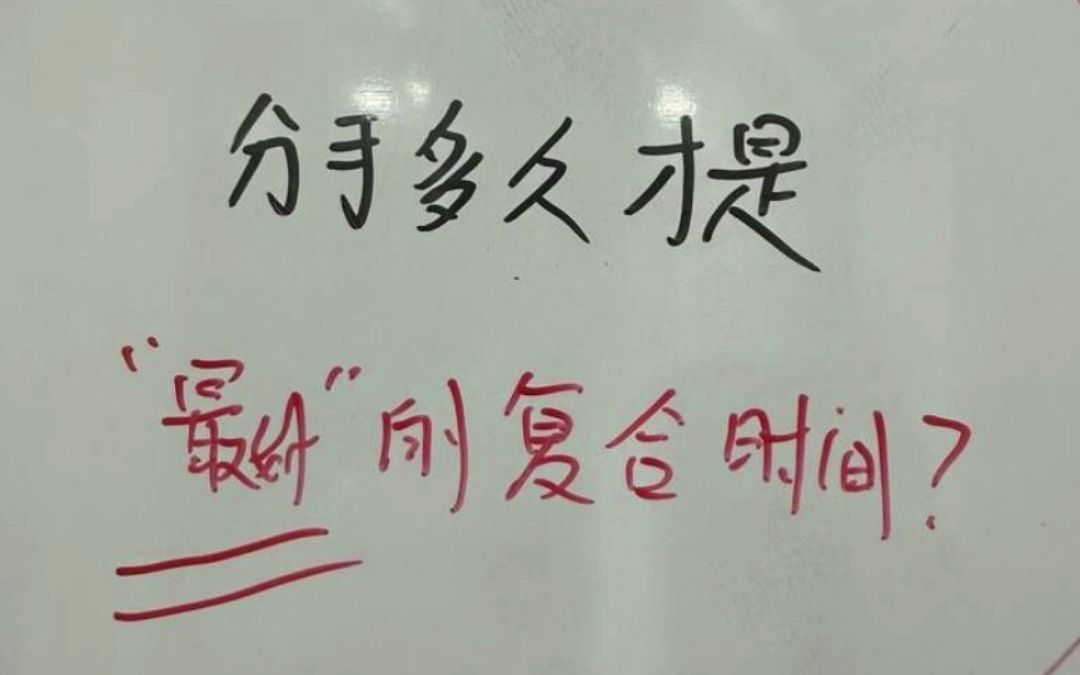 分手多久才是
"最终"的复合时间?